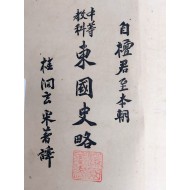 自檀君至本朝
中等教科 東國史略
桂洞玄采著譯